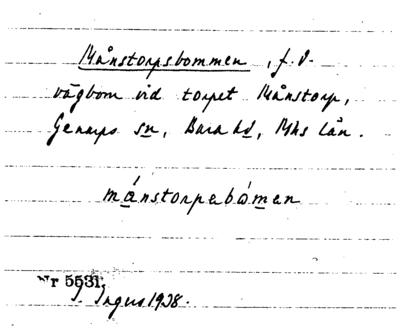 Månstorpsbommen, f.d.
vägbom vid torpet Månstorp,
Genarps sn, Bara hd, Mhs län.
månstorpabómen
Nr 5531.
J. Ingers 1938.